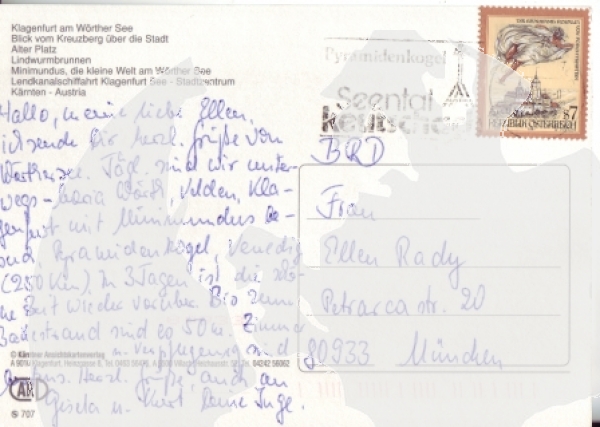 Klagenfurt am Wörther See
Blick vom Kreuzberg über die Stadt
Alter Platz
Lindwurmbrunnen
Minimundus, die kleine Welt am Wörther See
Lendkanalschiffahrt Klagenfurt See - Stadtzentrum
Kärnten - Austria
Hallo, meine liebe Ellen,
ich sende Dir herzl. Grüße vom
Wörthersee. Tägl. sind wir unter-
wegs - Maria Wörth, Velden, Kla-
genfurt mit Minimundus
Pyramidenkogel, Venedig
(250 Km). In 3 Tagen ist die
Zeit wieder vorüber. Bis zum
Badestrand sind es 50 m. Zimmer
u. Verpflegung sind
Herzl. Grüße, auch an
Gisela u. Kurt Deine Inge.
© Kärntner Ansichtskartenverlag
S 707
Pyramidenkogel
Seental
keutschach
S7
REPUBLIK ÖSTERREICH
BRD
Frau
Ellen Rady
Petrarcastr. 20
80933 München